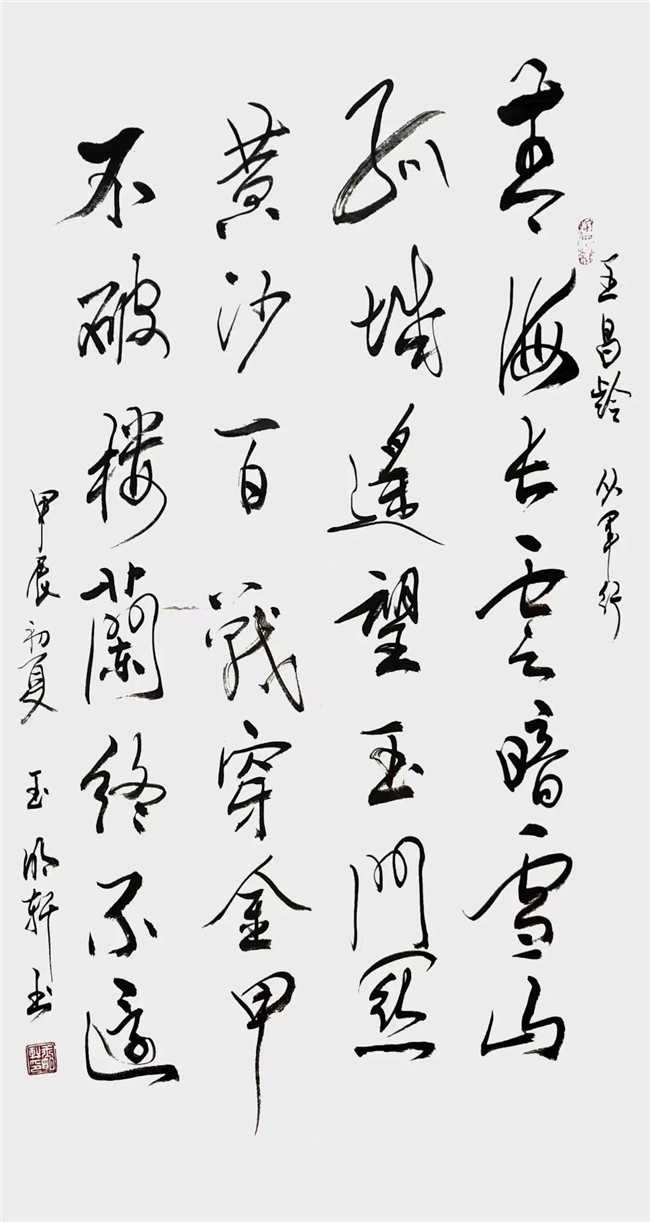 王昌龄 从军行
青海长雲暗雪山
孤城遥望玉門関
黄沙百戰穿金甲
不破楼蘭终不還
甲辰初夏 玉明轩书